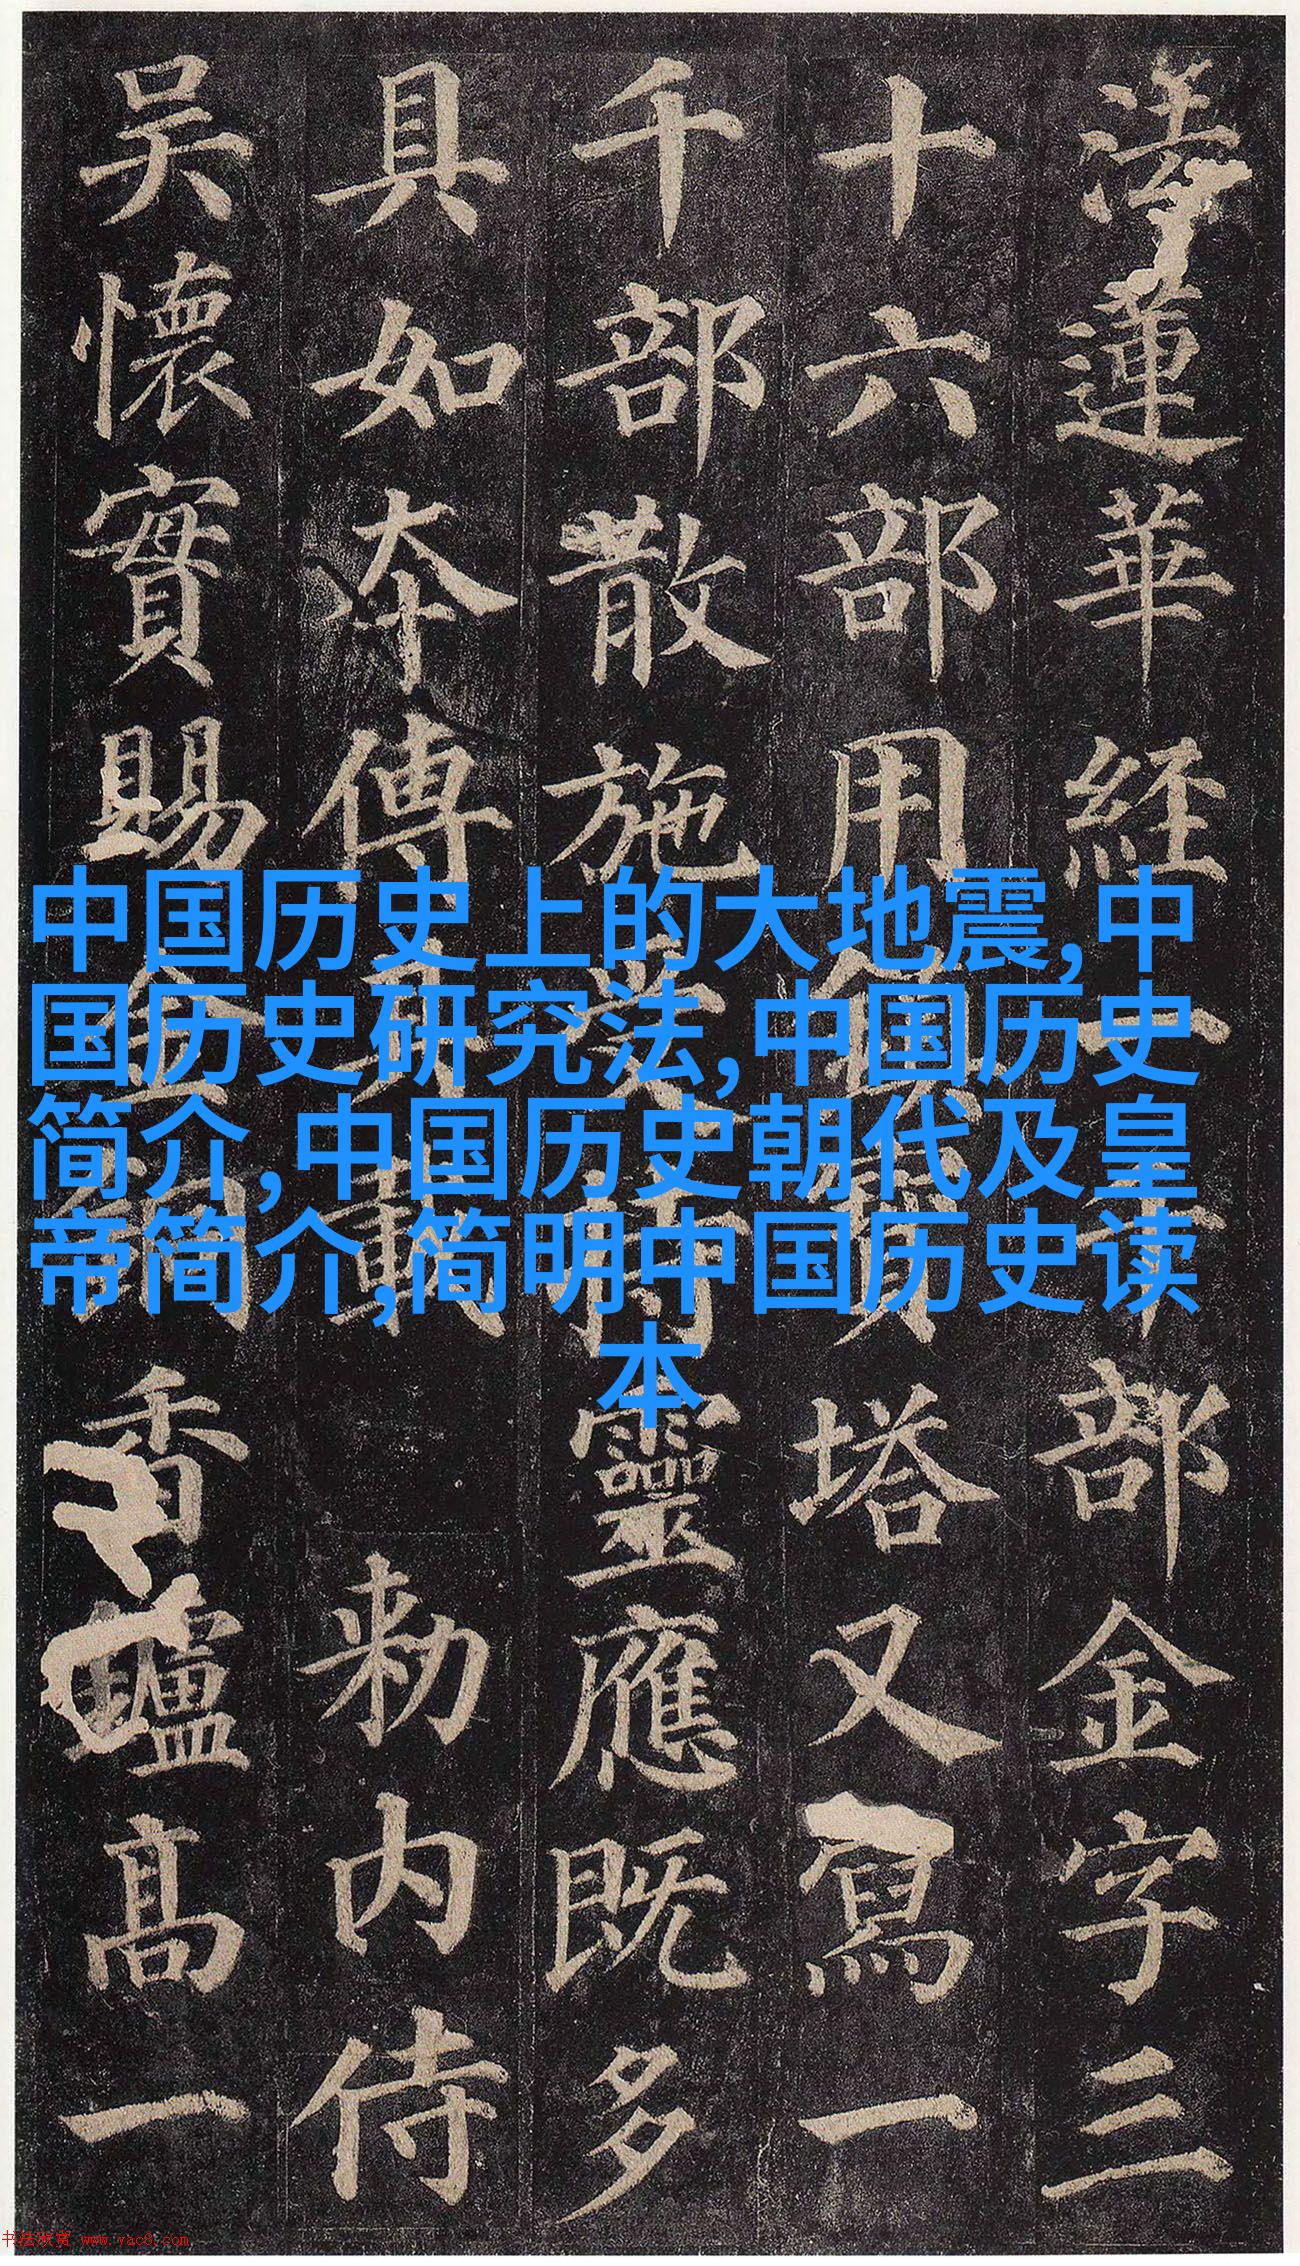 中国历史上的大地震,中
国历史研究法,中国历史
简介,中国历史朝代及皇
帝简介,简明中国历史读
本
法蓮華經一千部金字三
十六部用鎮寶塔又寫一
千部散施受持靈應既多
具如夲傳其載勅内侍
吴懷實賜金銅香鑪髙一
书法欣赏 www.yac8.com